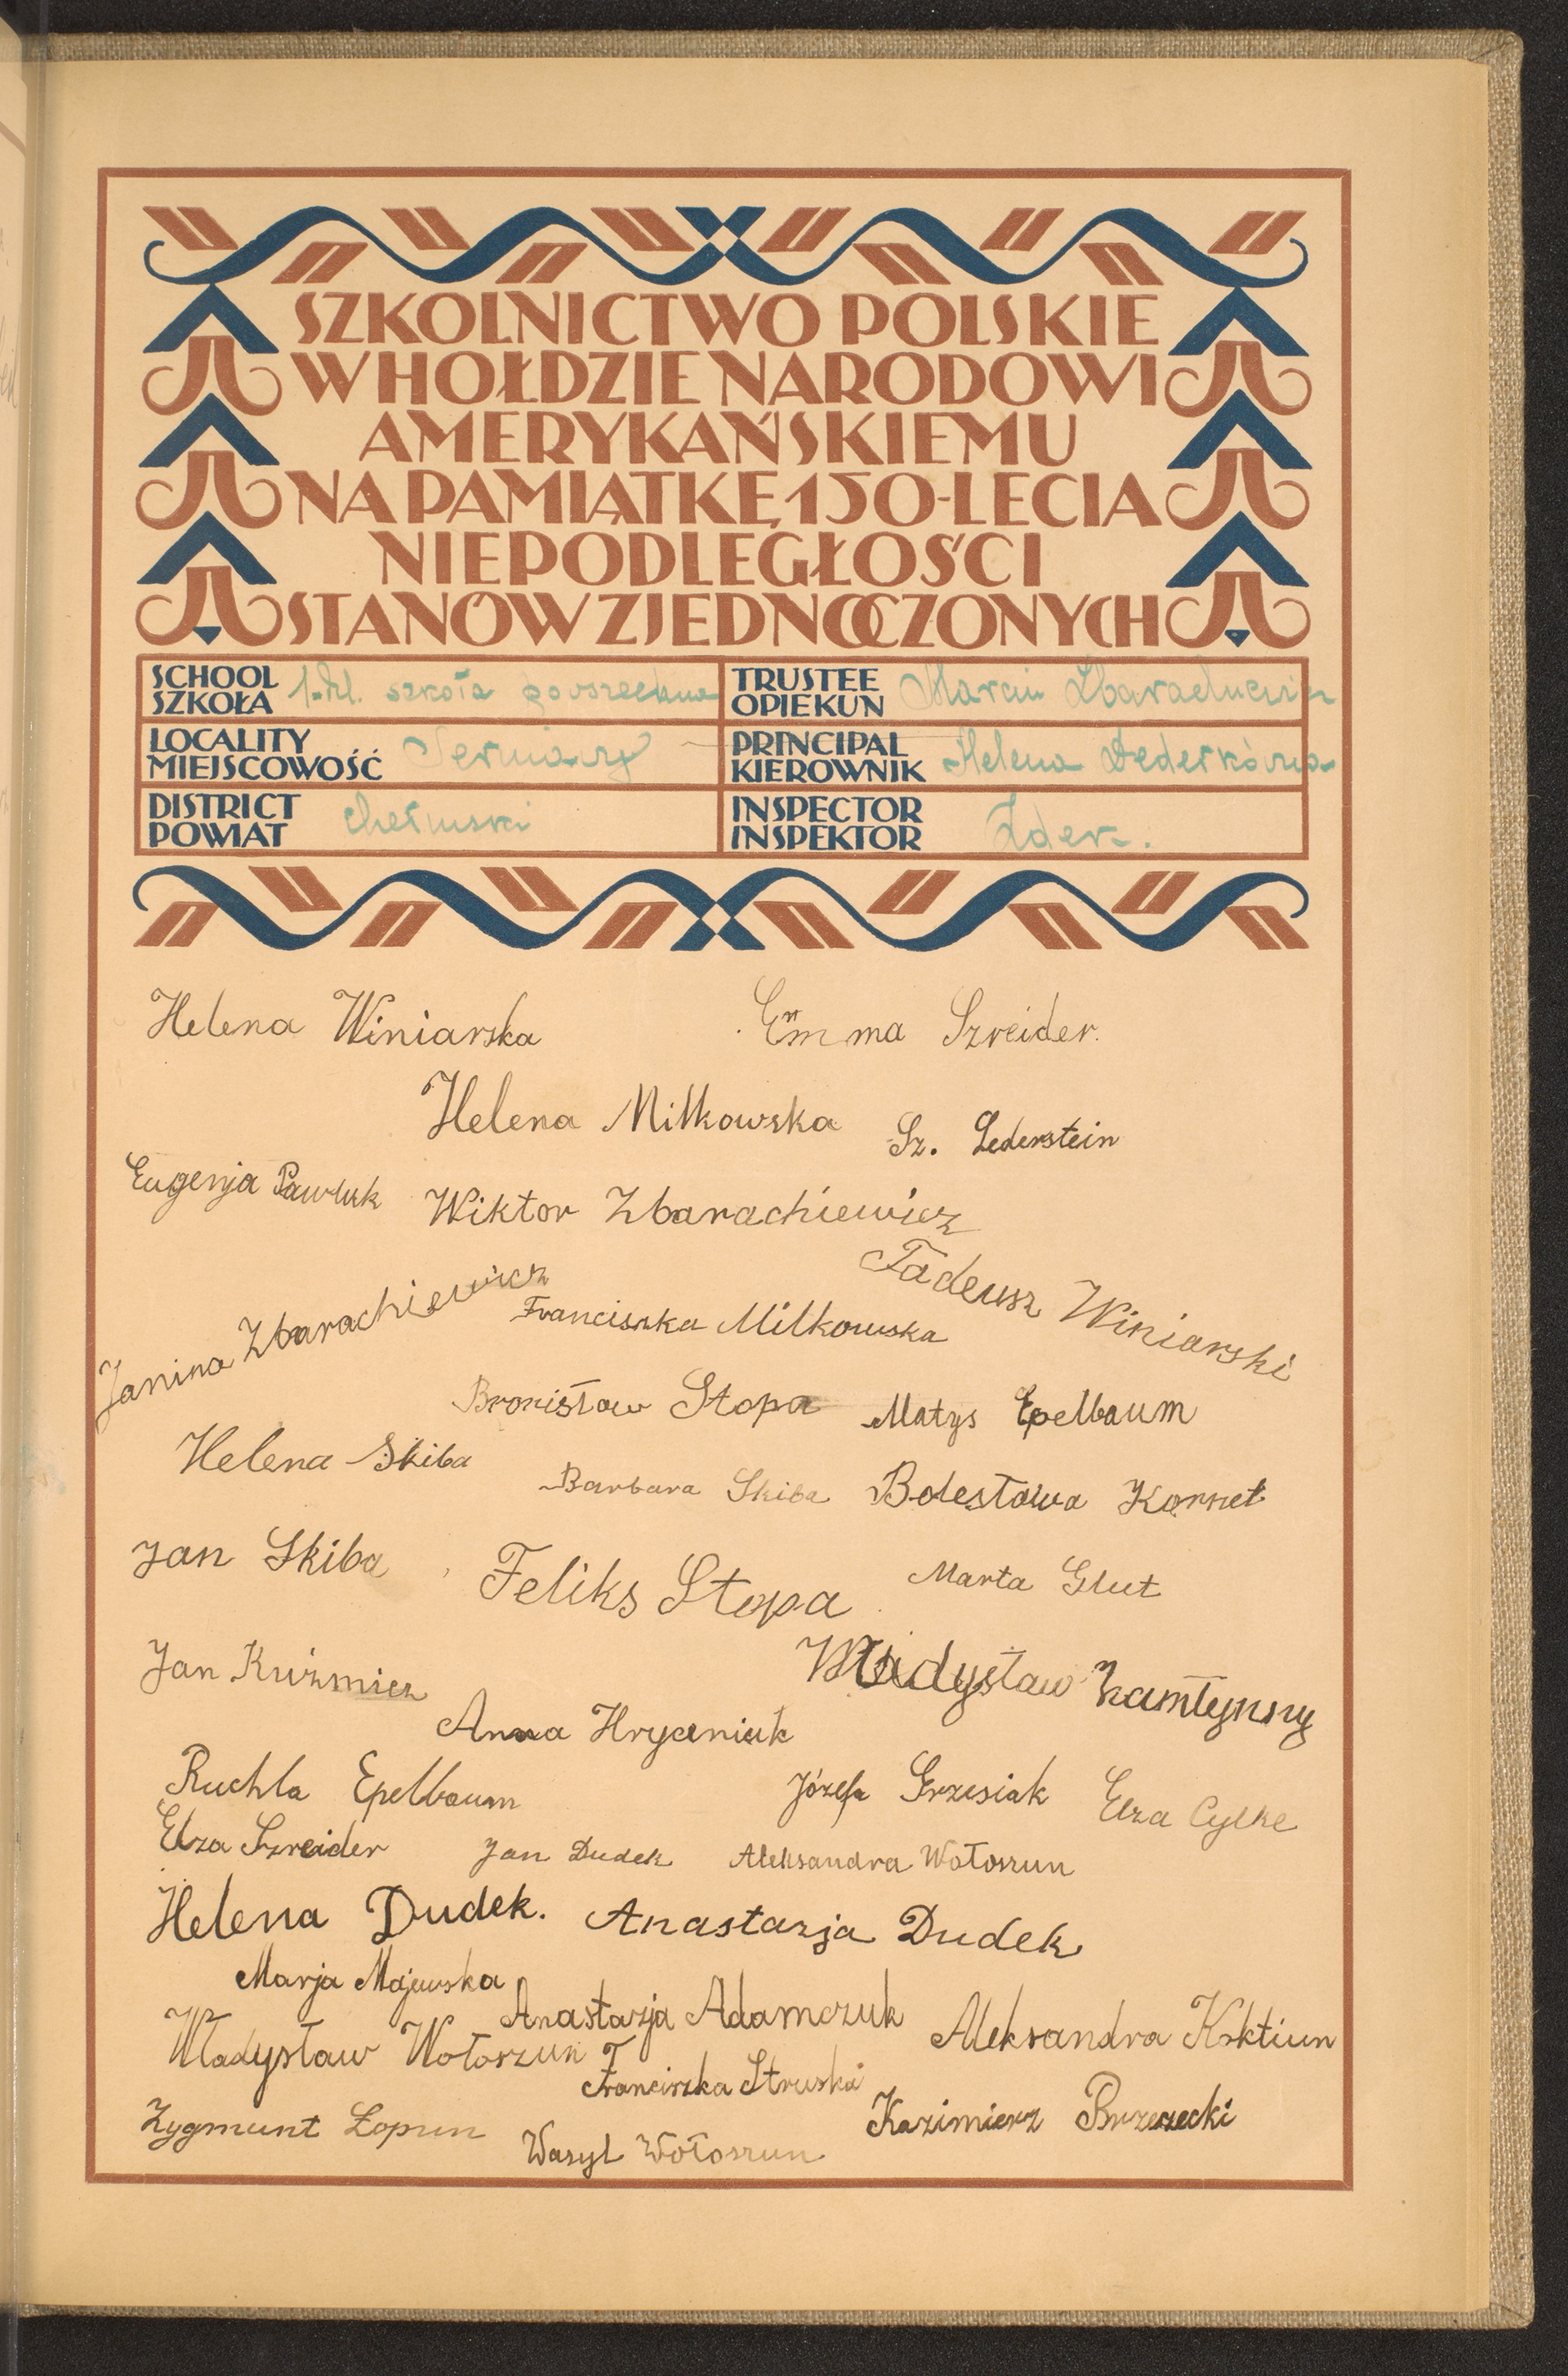 SZKOLNICTWO POLSKIE
W HOŁDZIE NARODOWI
AMERYKAŃSKIEMU
NA PAMIĄTKĘ 150-LECIA
NIEPODLEGŁOŚCI
STANÓW ZJEDNOCZONYCH
SCHOOL
SZKOŁA 1-kl. szkoła powszechna
TRUSTEE
OPIEKUN Marcin
LOCALITY
MIEJSCOWOŚĆ
PRINCIPAL
KIEROWNIK Helena Dederkówna
DISTRICT
POWIAT chełmski
INSPECTOR
INSPEKTOR
Helena Winiarska
Emma Szreider.
Helena Milkowska
Sz. Lederstein
Eugenja Pawluk
Wiktor Zbarachiewicz
Tadeusz Winiarski
Janina Zbarachiewicz
Franciszka Milkowska
Bronisław Stopa
Matys Epelbaum
Helena Skiba
Barbara Skiba
Bolesława Kornet
Jan Skiba
Feliks Stopa
Marta Glut
Jan Kuźmicz
Władysław Zamłynny
Anna Hryceniuk
Ruchla Epelbaum
Józefa Grzesiak
Elza Cylke
Elza Szreider
Jan Dudek
Aleksandra Wołoszun
Helena Dudek.
Anastazja Dudek
Marja Majewska
Anastazja Adamczuk
Aleksandra
Władysław Wołoszun
Franciszka Struska
Kazimierz Brzezecki
Zygmunt Łopun
Wasyl Wołoszun